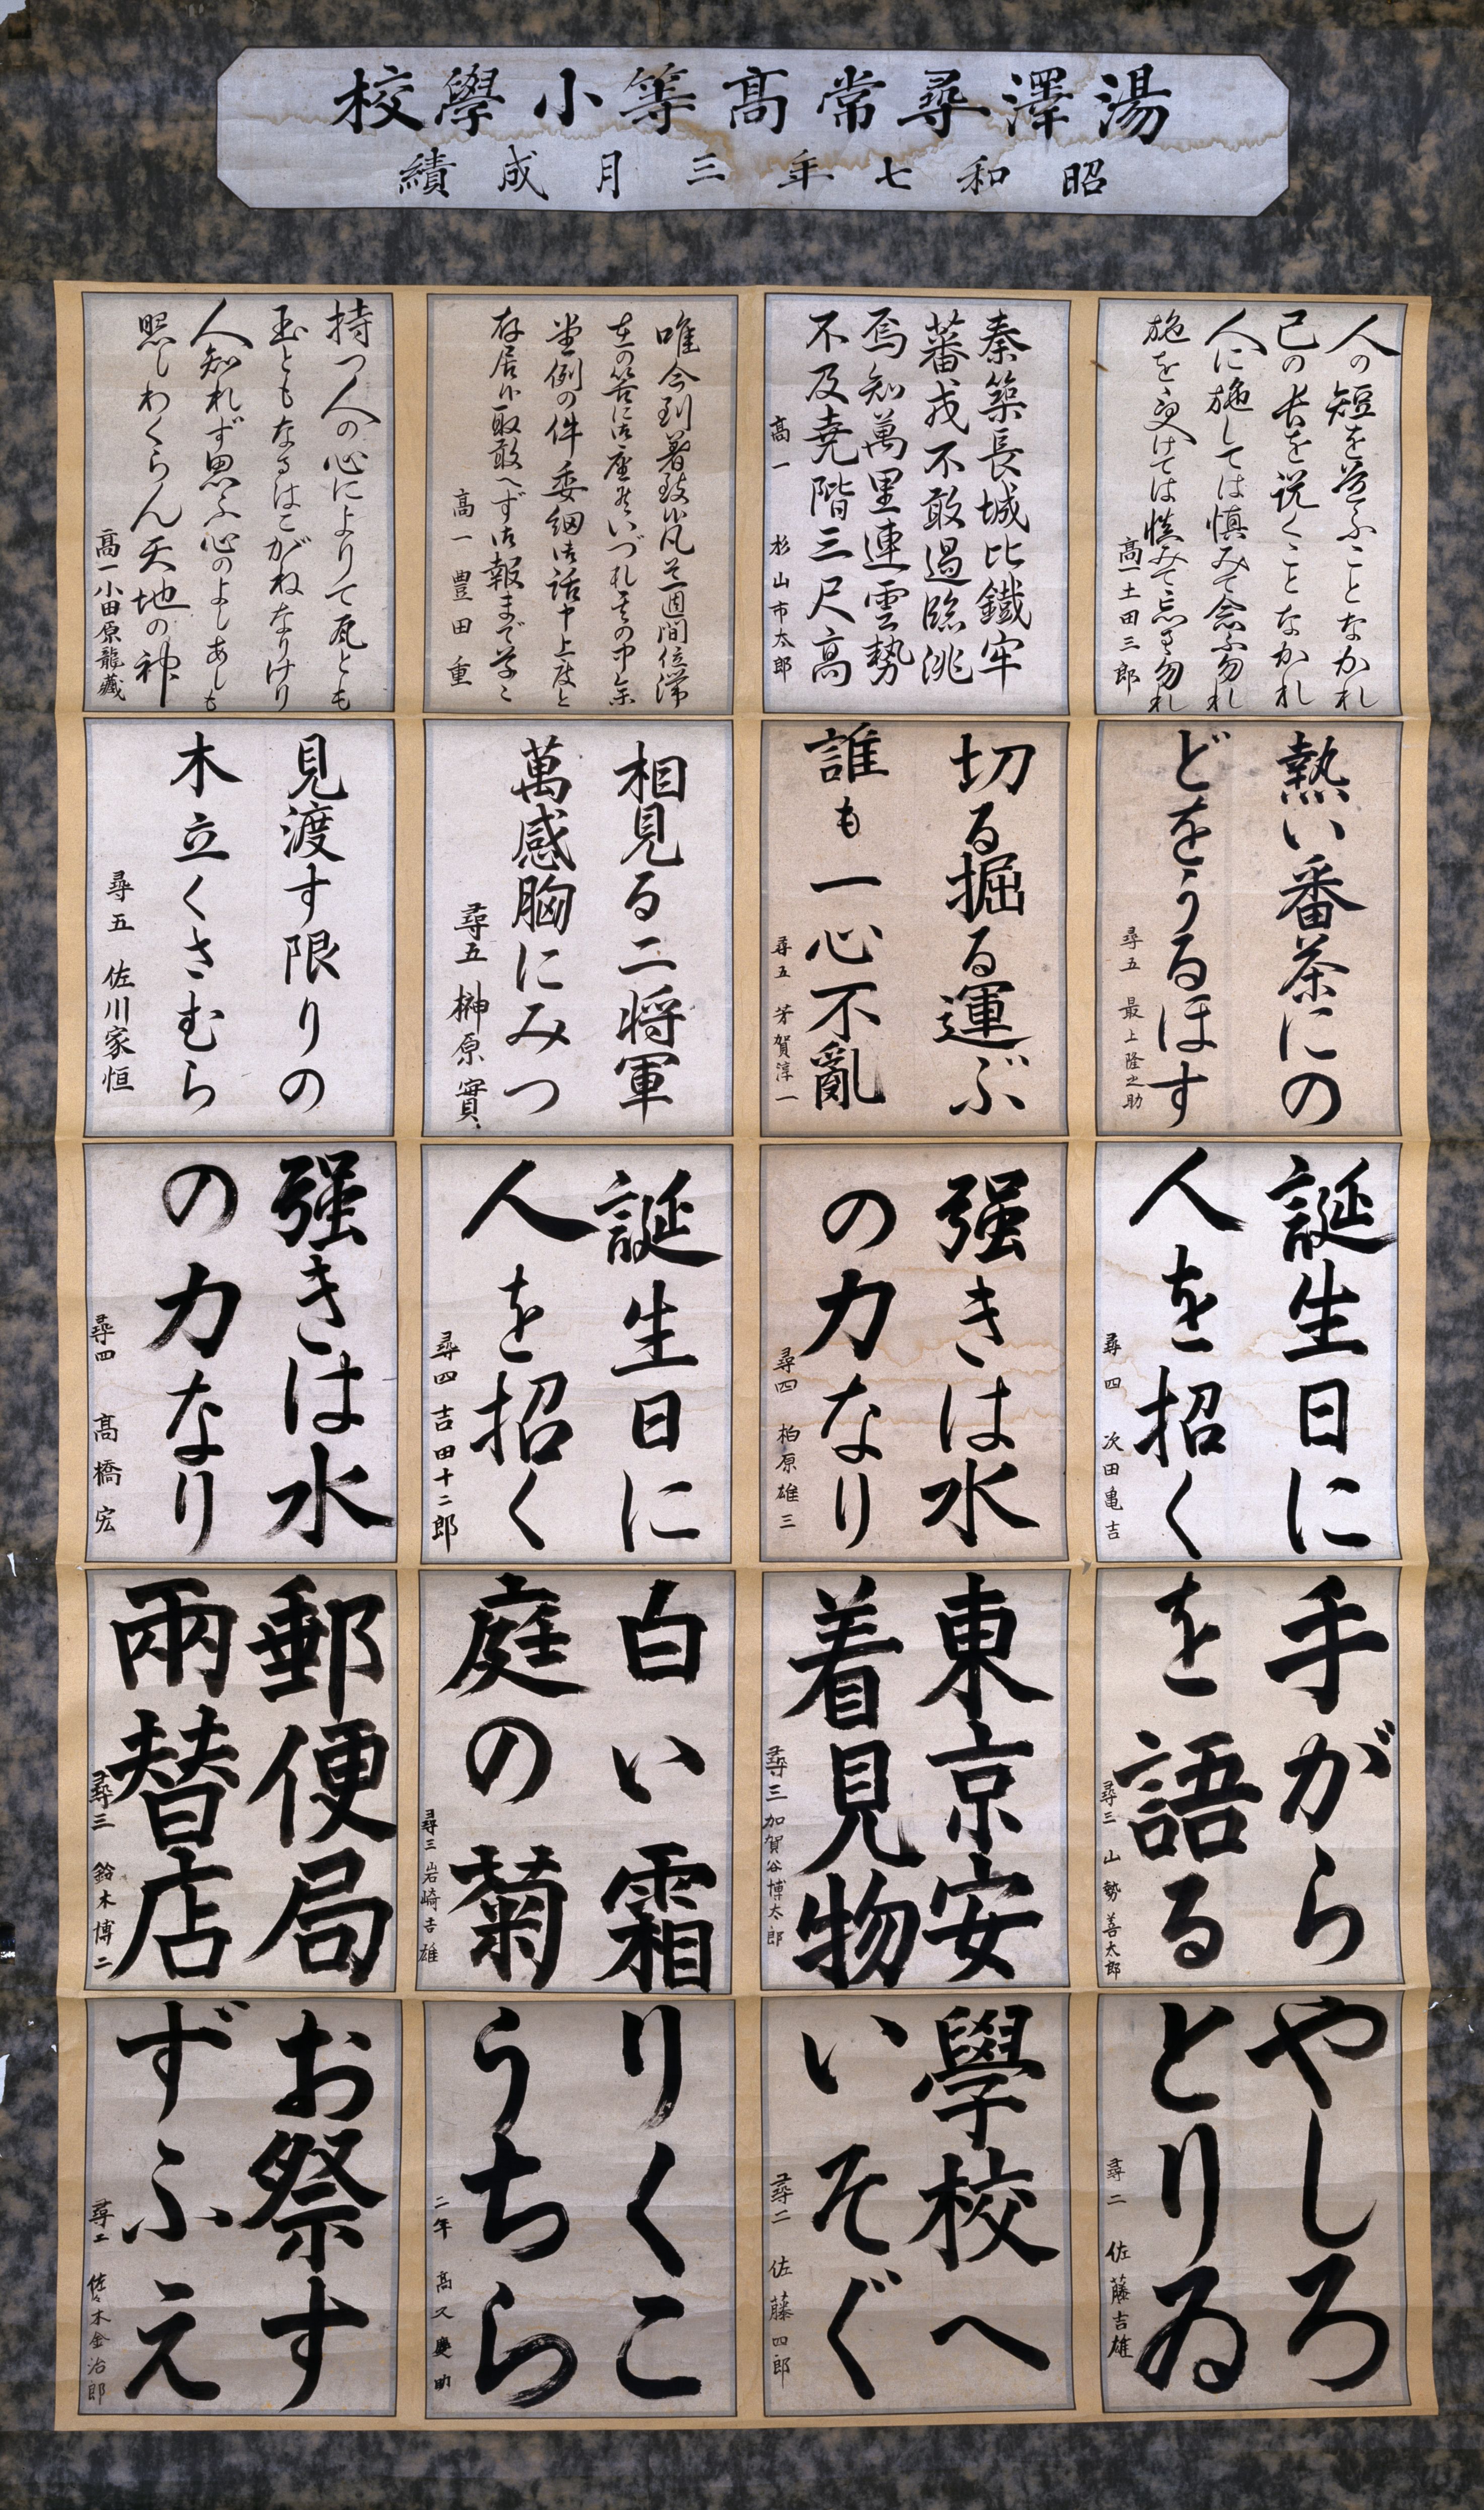 湯澤尋常高等小學校
昭和七年三月成績
人の短を道ふことなかれ
己の長を説くことなかれ
人に施しては慎みて念ふ勿れ
施を受けては慎みて忘るゝ勿れ
高一 土田三郎
秦築長城比鐵牢
蕃戎不敢過臨洮
焉知萬里連雲勢
不及堯階三尺高
高一 杉山市太郎
唯今到着致候凡そ一週間位滞
在の筈に御座候いづれその中参
堂例の件委細御話申上度と
存居候取敢へず御報まで草々
高一 豊田重
持つ人の心によりて瓦とも
玉ともなるはこがねなりけり
人知れず思ふ心のよしあしも
照しわくらん天地の神
高一 小田原龍藏
熱い番茶にの
どをうるほす
尋五 最上隆之助
切る掘る運ぶ
誰も一心不亂
尋五 芳賀淳一
相見る二将軍
萬感胸にみつ
尋五 榊原實
見渡す限りの
木立くさむら
尋五 佐川家恒
誕生日に
人を招く
尋四 次田亀吉
强きは水
の力なり
尋四 柏原雄三
誕生日に
人を招く
尋四 吉田十二郎
强きは水
の力なり
尋四 髙橋宏
手がら
を語る
尋三 山勢善太郎
東京安
着見物
尋三 加賀谷博太郎
白い霜
庭の菊
尋三 岩崎吉雄
郵便局
兩替店
尋三 鈴木博二
やしろ
とりゐ
尋二 佐藤吉雄
學校へ
いそぐ
尋二 佐藤四郎
りくこ
うちら
二年 高久慶助
お祭す
ずふえ
尋二 佐々木金治郎